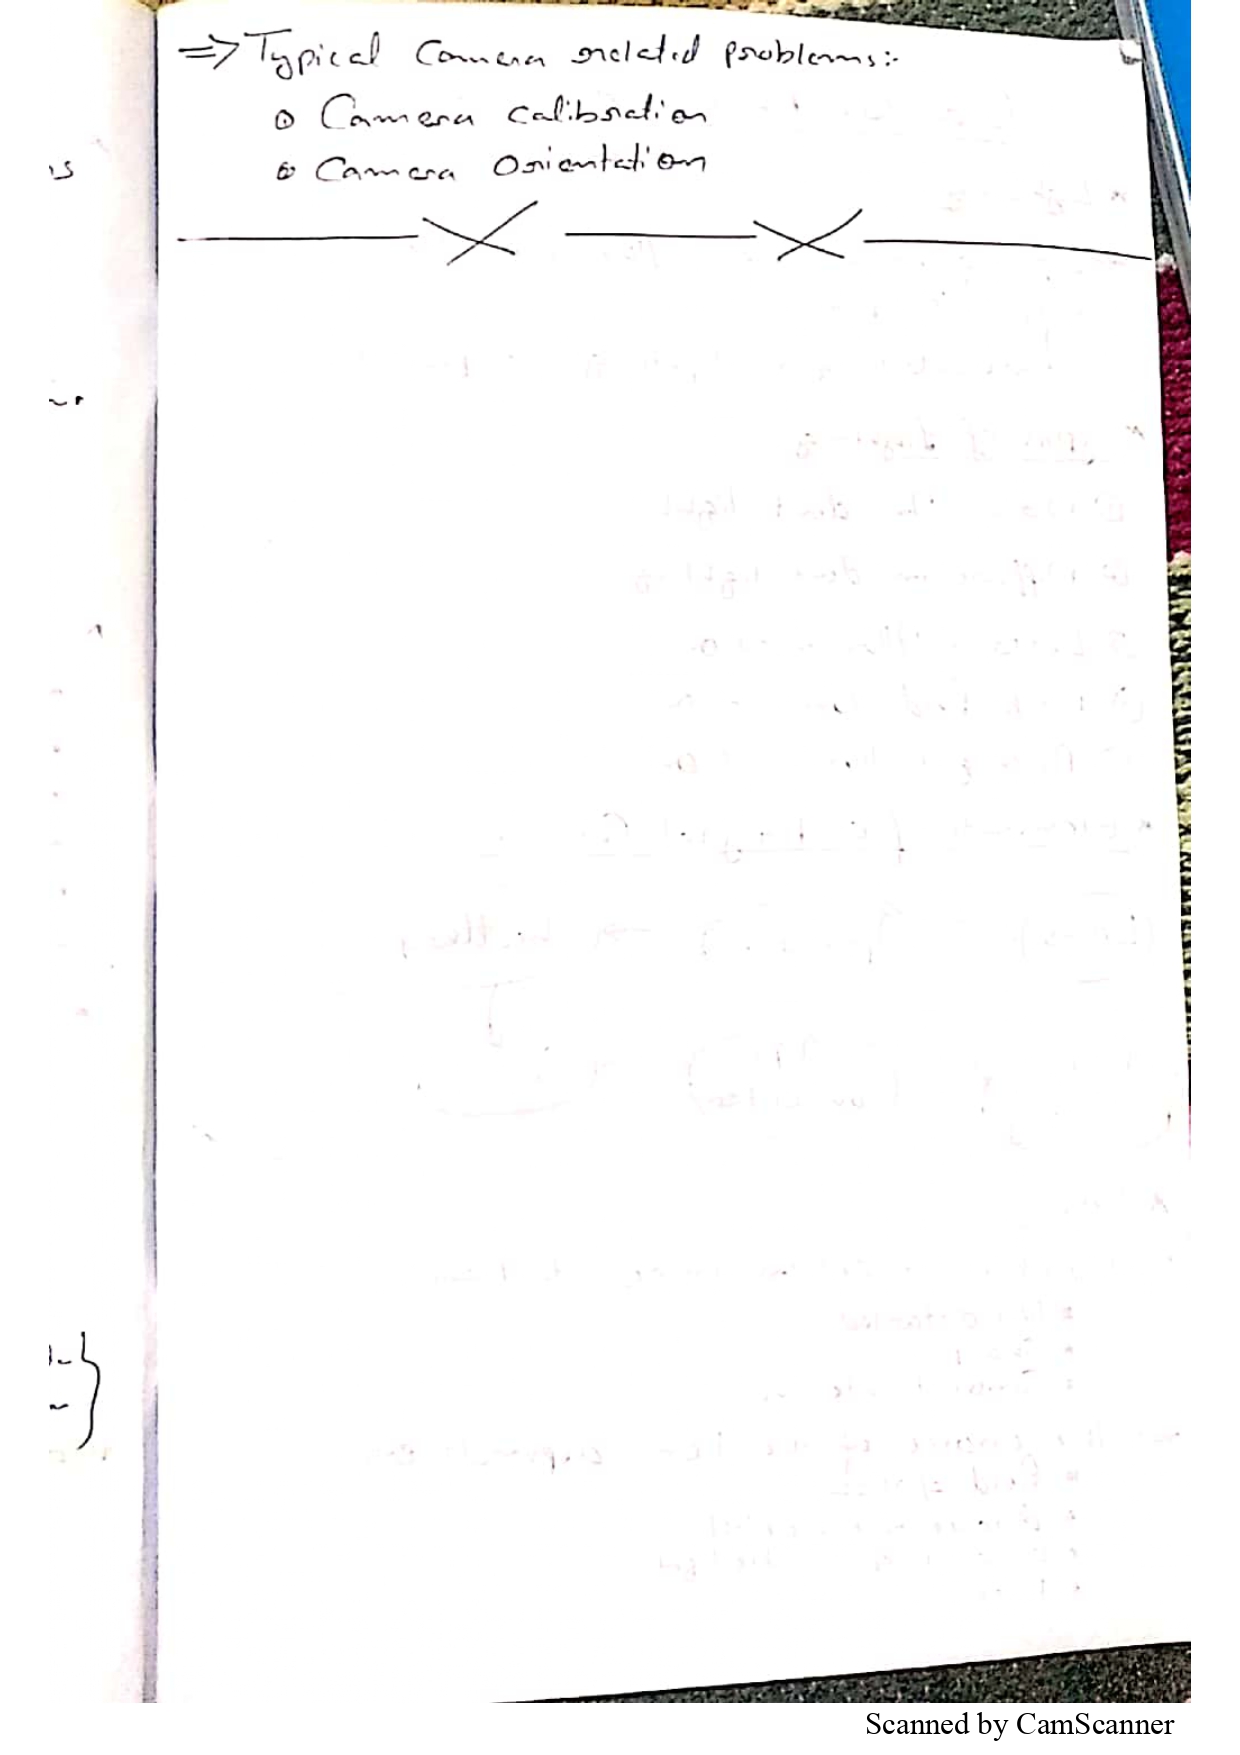 ⇒ Typical Camera related problems:-
⊙ Camera calibration
⊙ Camera Orientation
Scanned by CamScanner